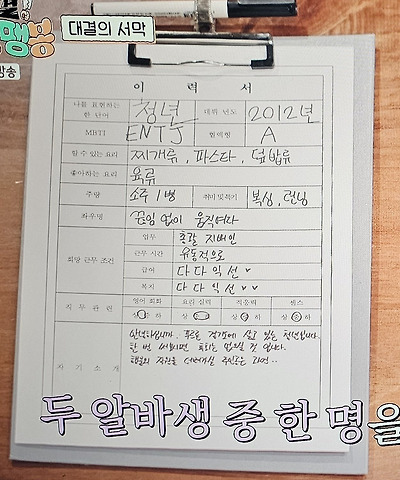 대결의 서막
방송
이 력 서
나를 표현하는 한 단어 청년 데뷔 년도 2012년
MBTI ENTJ 혈액형 A
할 수 있는 요리 찌개류, 파스타, 덮밥류
좋아하는 요리 육류
주량 소주 1병 취미 및 특기 복싱, 런닝
좌우명 끊임 없이 움직여라
희망 근무 조건
업무 총괄 지배인
근무 시간 유동적으로
급여 다다익선
복지 다다익선
직무 관련
영어 회화 요리 실력 적응력 센스
상 중 하 상 중 하 상 중 하 상 중 하
자 기 소 개
안녕하십니까. 푸르른 청년입니다.
한 번 써보시면 후회는 없으실 것 입니다.
두 알바생 중 한 명을